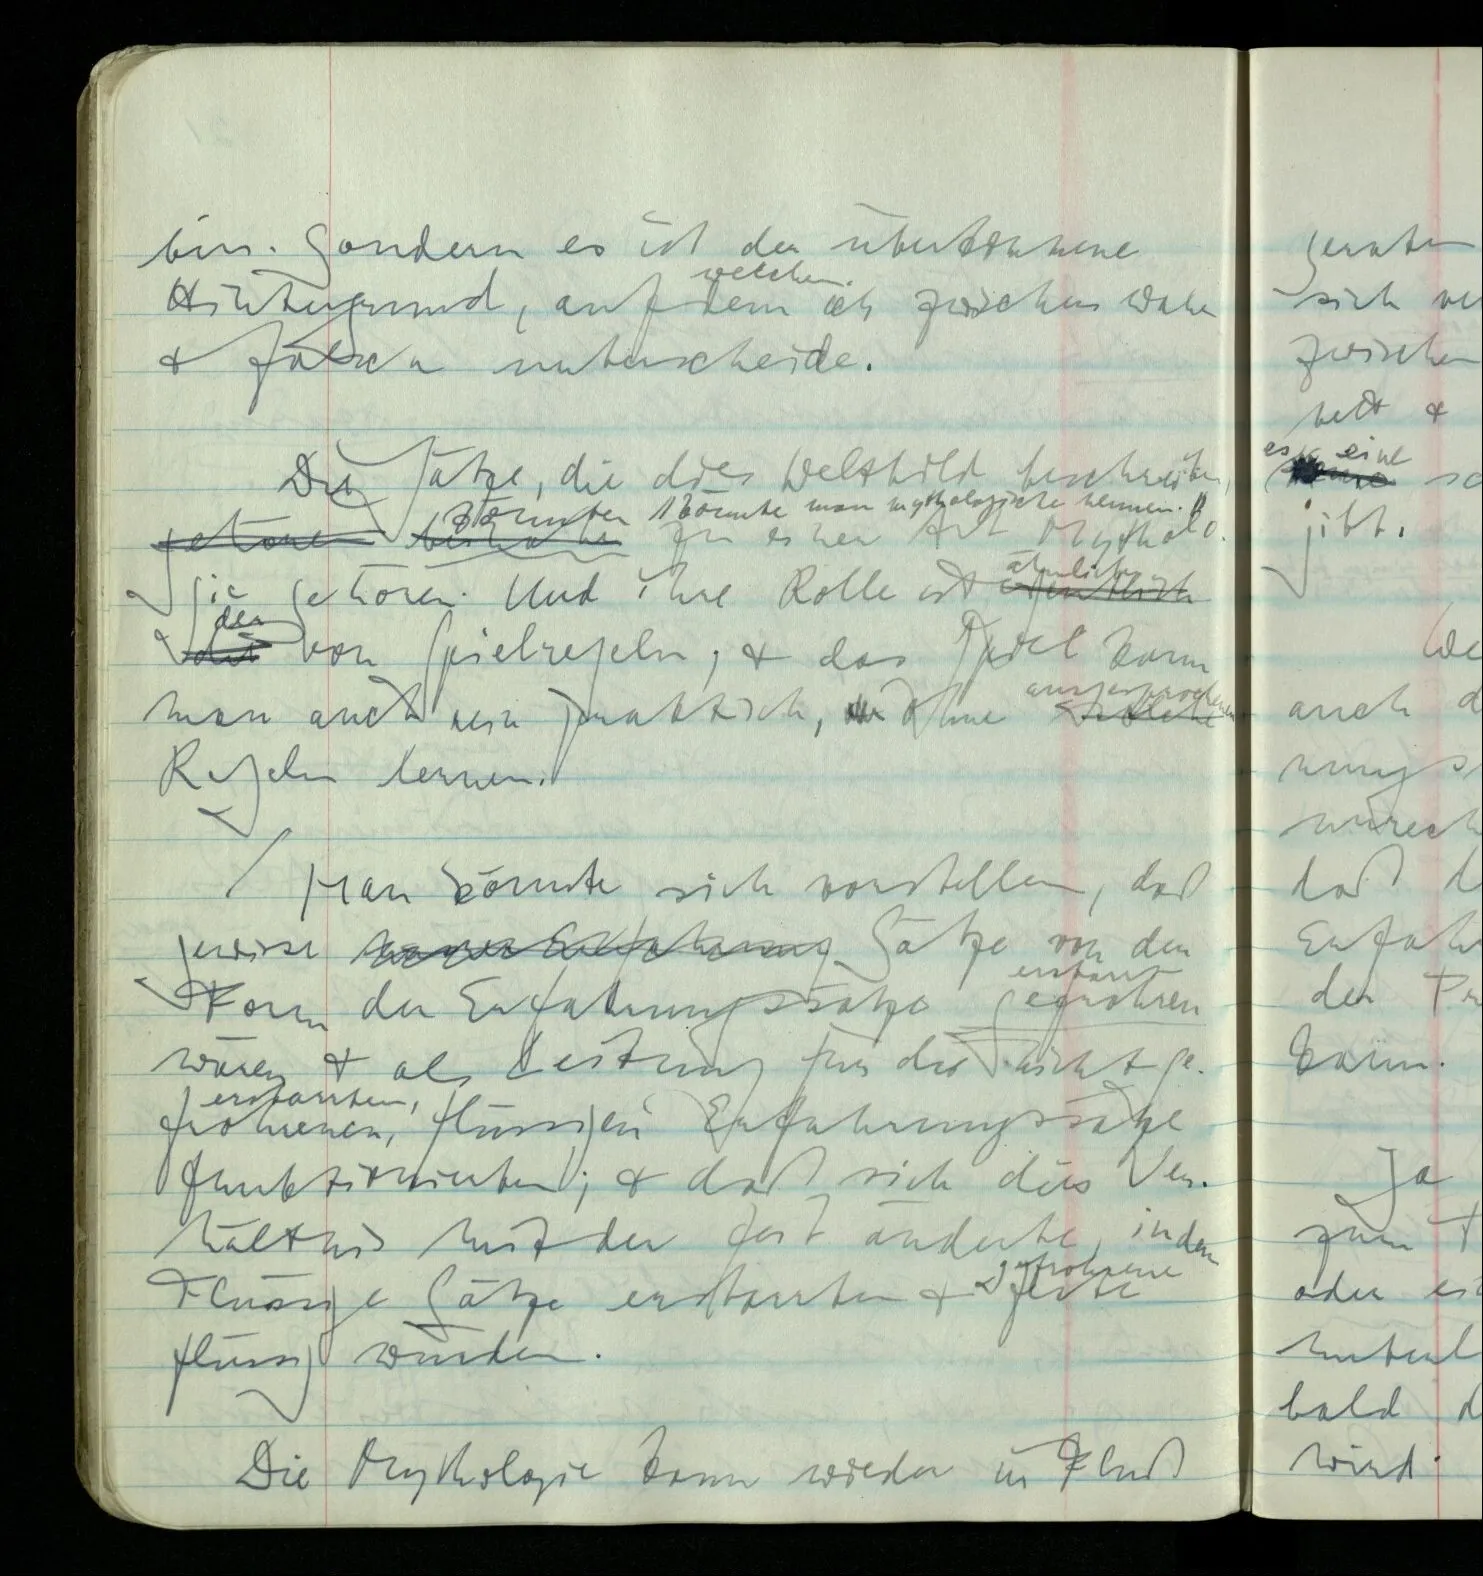 bin. Sondern es ist der überkommene
welchem
Hintergrund, auf dem ich zwischen wahr
& falsch unterscheide.
Die Sätze, die dies Weltbild beschreiben,
könnten könnte man mythologische nennen."
gehören zu einer Art Mytholo-
ähnlich
gie gehören. Und ihre Rolle ist
der
die von Spielregeln, & das Spiel kann
ausgesprochenen
man auch rein praktisch, ohne
Regeln lernen.
/ Man könnte sich vorstellen, daß
gewisse Sätze von der
erstarrt
Form der Erfahrungssätze gefrohren
wären & als Leitung für die nicht ge-
erstarrten,
frohrenen, flüssigen Erfahrungssätze
funktionierten; & daß sich dies Ver-
hältnis mit der Zeit änderte, indem
gefrohrene
flüssige Sätze erstarrten & feste
flüssig würden.
Die Mythologie kann wieder in Fluß
geraten
sich
zwischen
bett &
es eine
gibt.
auch d
daß d
Erfah
der
kann.
Ja
zum
oder ei
bald d
wird.